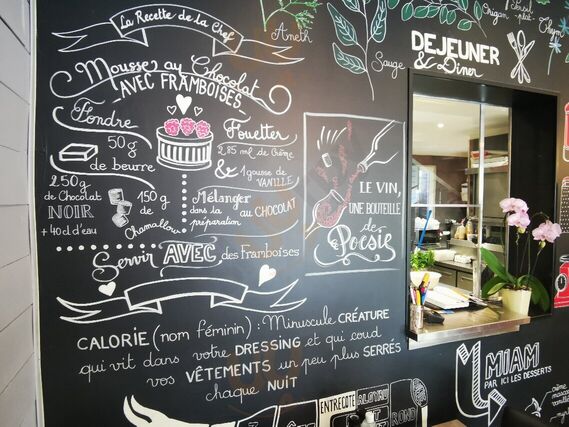 La Recette de la Chef
Mousse au Chocolat
AVEC FRAMBOISES
Fondre
50g
de beurre
250g
de Chocolat
NOIR
+ 40cl d'eau
150g
de
Chamallow
Fouetter
285 ml de Crème
& 1 gousse de
VANILLE
Mélanger
dans la
préparation
au CHOCOLAT
Servir AVEC des Framboises
CALORIE (nom féminin) : Minuscule CRÉATURE
qui vit dans votre DRESSING et qui coud
vos VÊTEMENTS un peu plus SERRÉS
chaque NUIT
LE VIN,
UNE BOUTEILLE
de
Poesie
Aneth
Sauge
Origan
plat
Thym
DEJEUNER
& Diner
ENTRECÔTE
ROND
MIAM
PAR ICI LES DESSERTS
crème